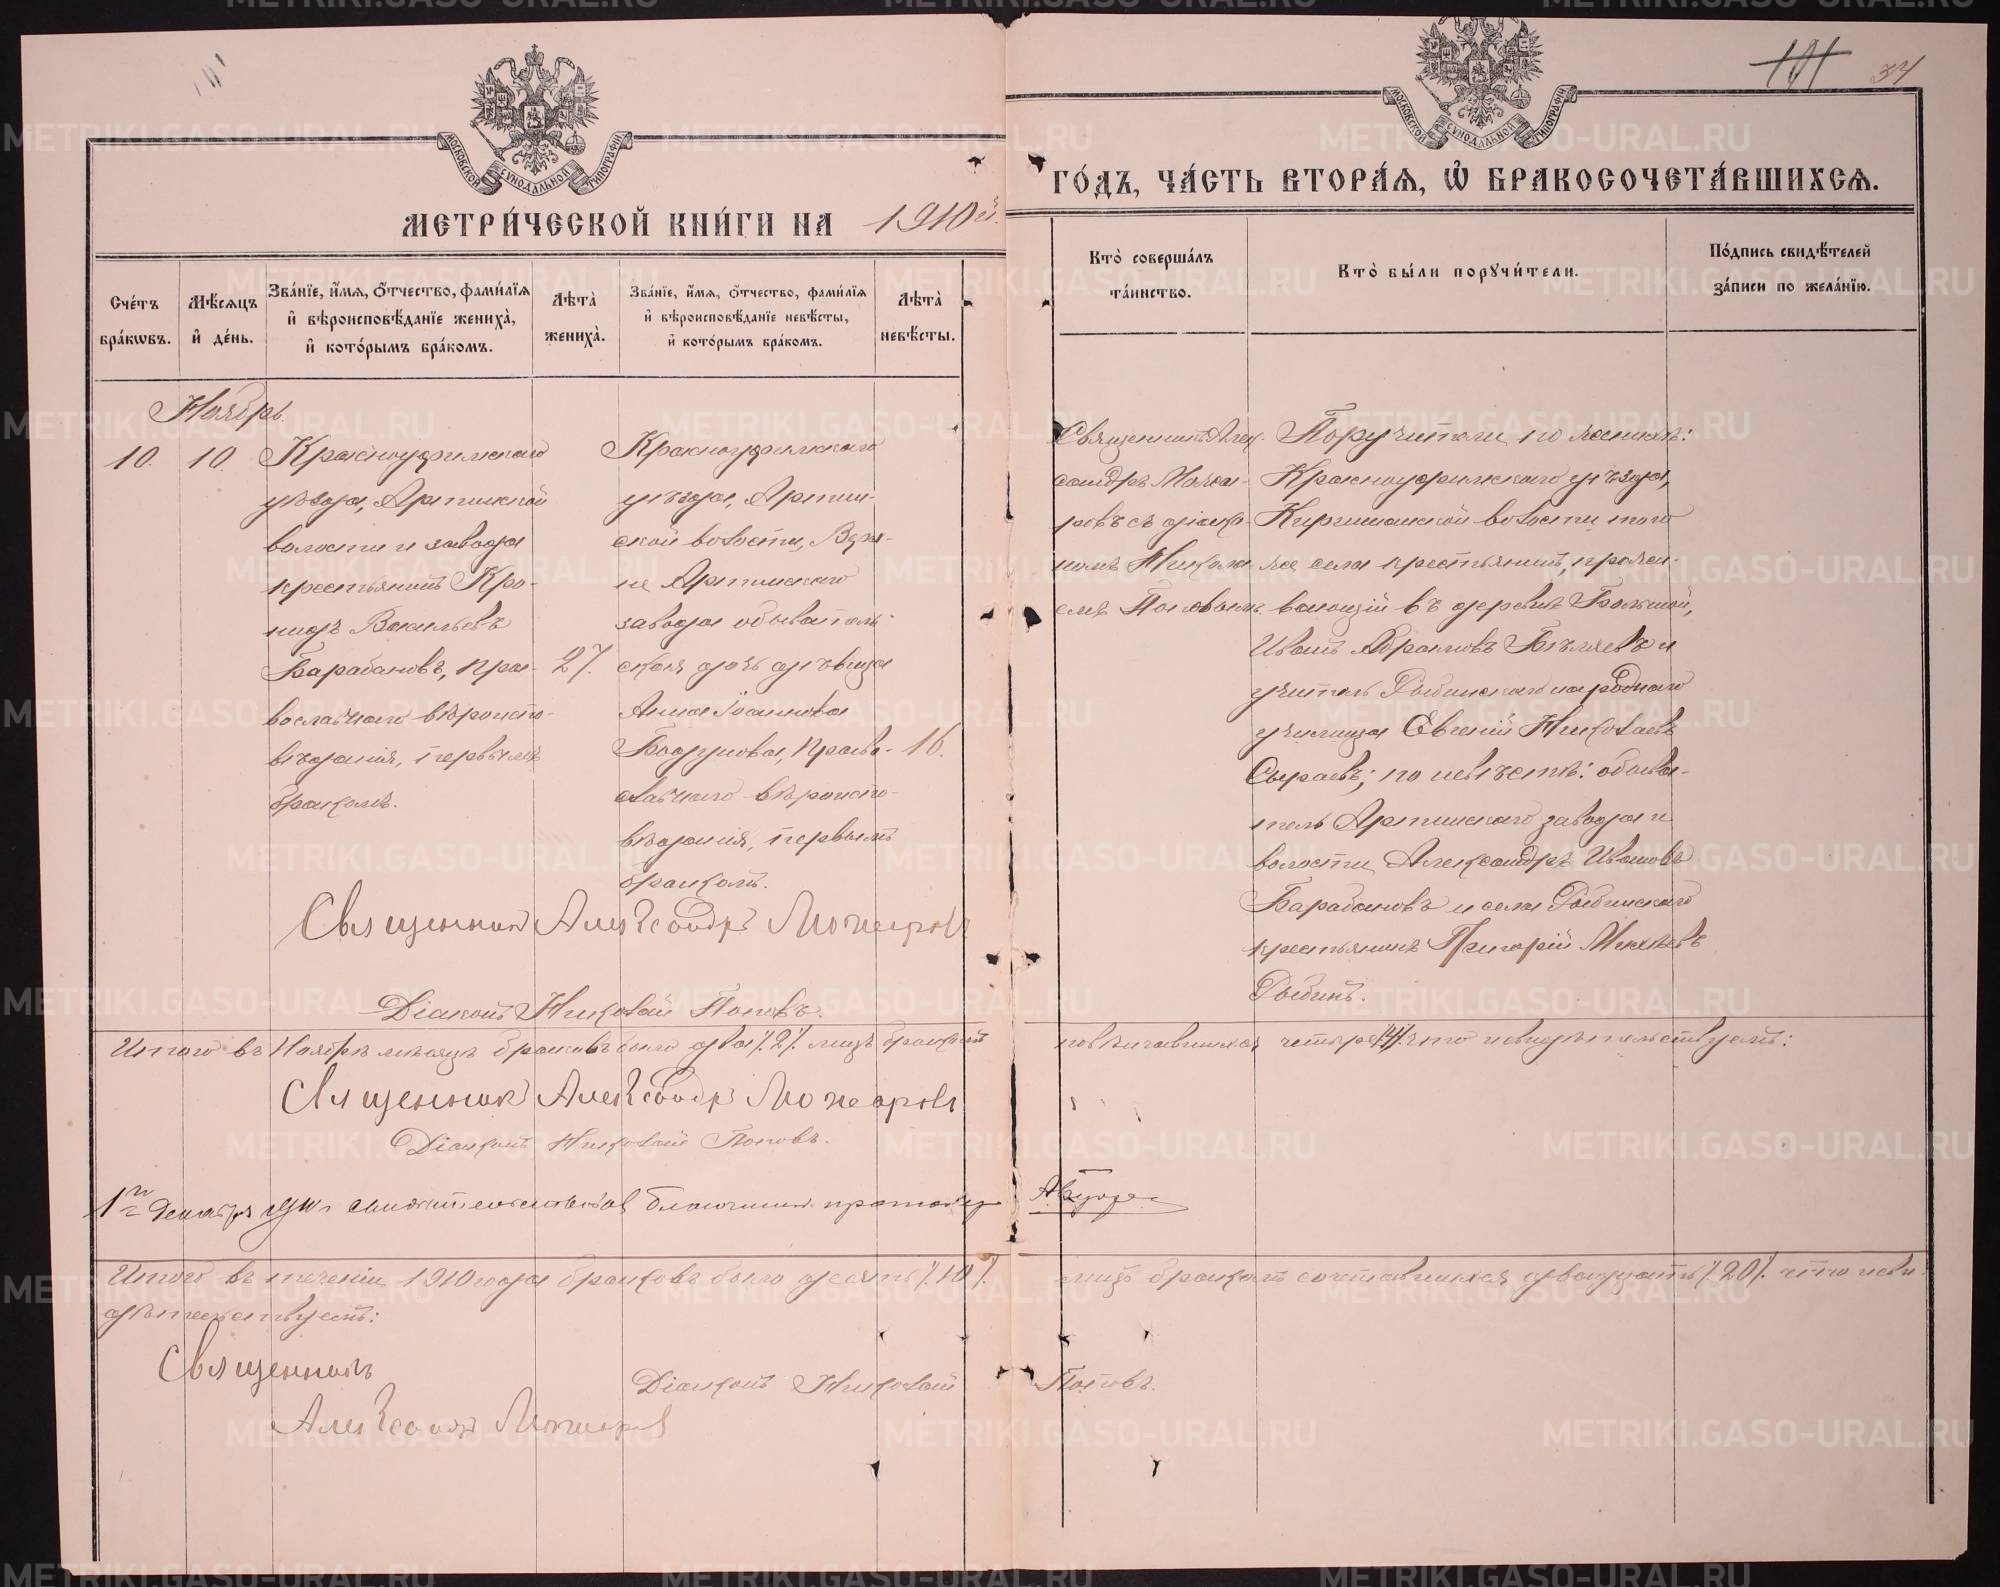 101
34
МОСКОВСКОЙ СУНОДАЛЬНОЙ ТИПОГРАФІИ
МОСКОВСКОЙ СУНОДАЛЬНОЙ ТИПОГРАФІИ
МЕТРИ́ЧЕСКОЙ КНИ́ГИ НА 1910 й.
ГО́ДЪ, ЧА́СТЬ ВТОРА́Ѧ, Ѽ БРАКОСОЧЕТА́ВШИХСѦ.
Сче́тъ бра́кѡвъ.
Мѣ́сѧцъ и҆ де́нь.
Зва́нїе, и҆́мѧ, ѻ҆́тчество, фами́лїѧ и҆ вѣроисповѣ́данїе жениха̀, и҆ кото́рымъ бра́комъ.
Лѣта̀ жениха̀.
Зва́нїе, и҆́мѧ, ѻ҆́тчество, фами́лїѧ и҆ вѣроисповѣ́данїе невѣ́сты, и҆ кото́рымъ бра́комъ.
Лѣта̀ невѣ́сты.
Кто̀ соверша́лъ та́инство.
Кто̀ бы́ли порꙋчи́тели.
По́дпись свидѣ́телей за́писи по жела́нїю.
Ноябрь.
10.
10.
Красноуфимскаго
уѣзда, Артинской
волости и завода
крестьянинъ Кро-
нидъ Васильевъ
Барабановъ, пра-
вославнаго вѣроиспо-
вѣданія, первымъ
бракомъ.
27.
Красноуфимскаго
уѣзда, Артин-
ской волости, Верх-
не Артинскаго
завода обыватель-
ская дочь дѣвица
Анна Іоаннова
Бодунова, право-
славнаго вѣроиспо-
вѣданія, первымъ
бракомъ.
16.
Священникъ Алек-
сандръ Можа-
ровъ съ діако-
номъ Никола-
емъ Поповымъ.
Поручители по женихѣ:
Красноуфимскаго уѣзда,
Киргишанской волости того
же села крестьянинъ, прожи-
вающій въ деревнѣ Большой,
Иванъ Абрамовъ Бѣляевъ и
учитель Рыбинскаго народнаго
училища Евгеній Николаевъ
Сыраевъ; по невѣстѣ: обыва-
тель Артинскаго завода и
волости Александръ Ивановъ
Барабановъ и села Рыбинскаго
крестьянинъ Григорій Михѣевъ
Рыбинъ.
Священникъ Александръ Можаровъ
Діаконъ Николай Поповъ.
Итого въ Ноябрѣ мѣсяцѣ браковъ было два /.2/. лицъ бракомъ повѣнчавшихся четыре /4/. что и свидѣтельствуемъ:
Священникъ Александръ Можаровъ
Діаконъ Николай Поповъ.
1го Декабря 1910 г. свидѣтельствовалъ благочинный протоіерей
Итого въ теченіи 1910 года браковъ было десять /.10/. лицъ бракомъ сочетавшихся двадцать /.20/. что и сви-
дѣтельствуемъ:
Священникъ
Александръ Можаровъ
Діаконъ Николай Поповъ.
METRIKI.GASO-URAL.RU